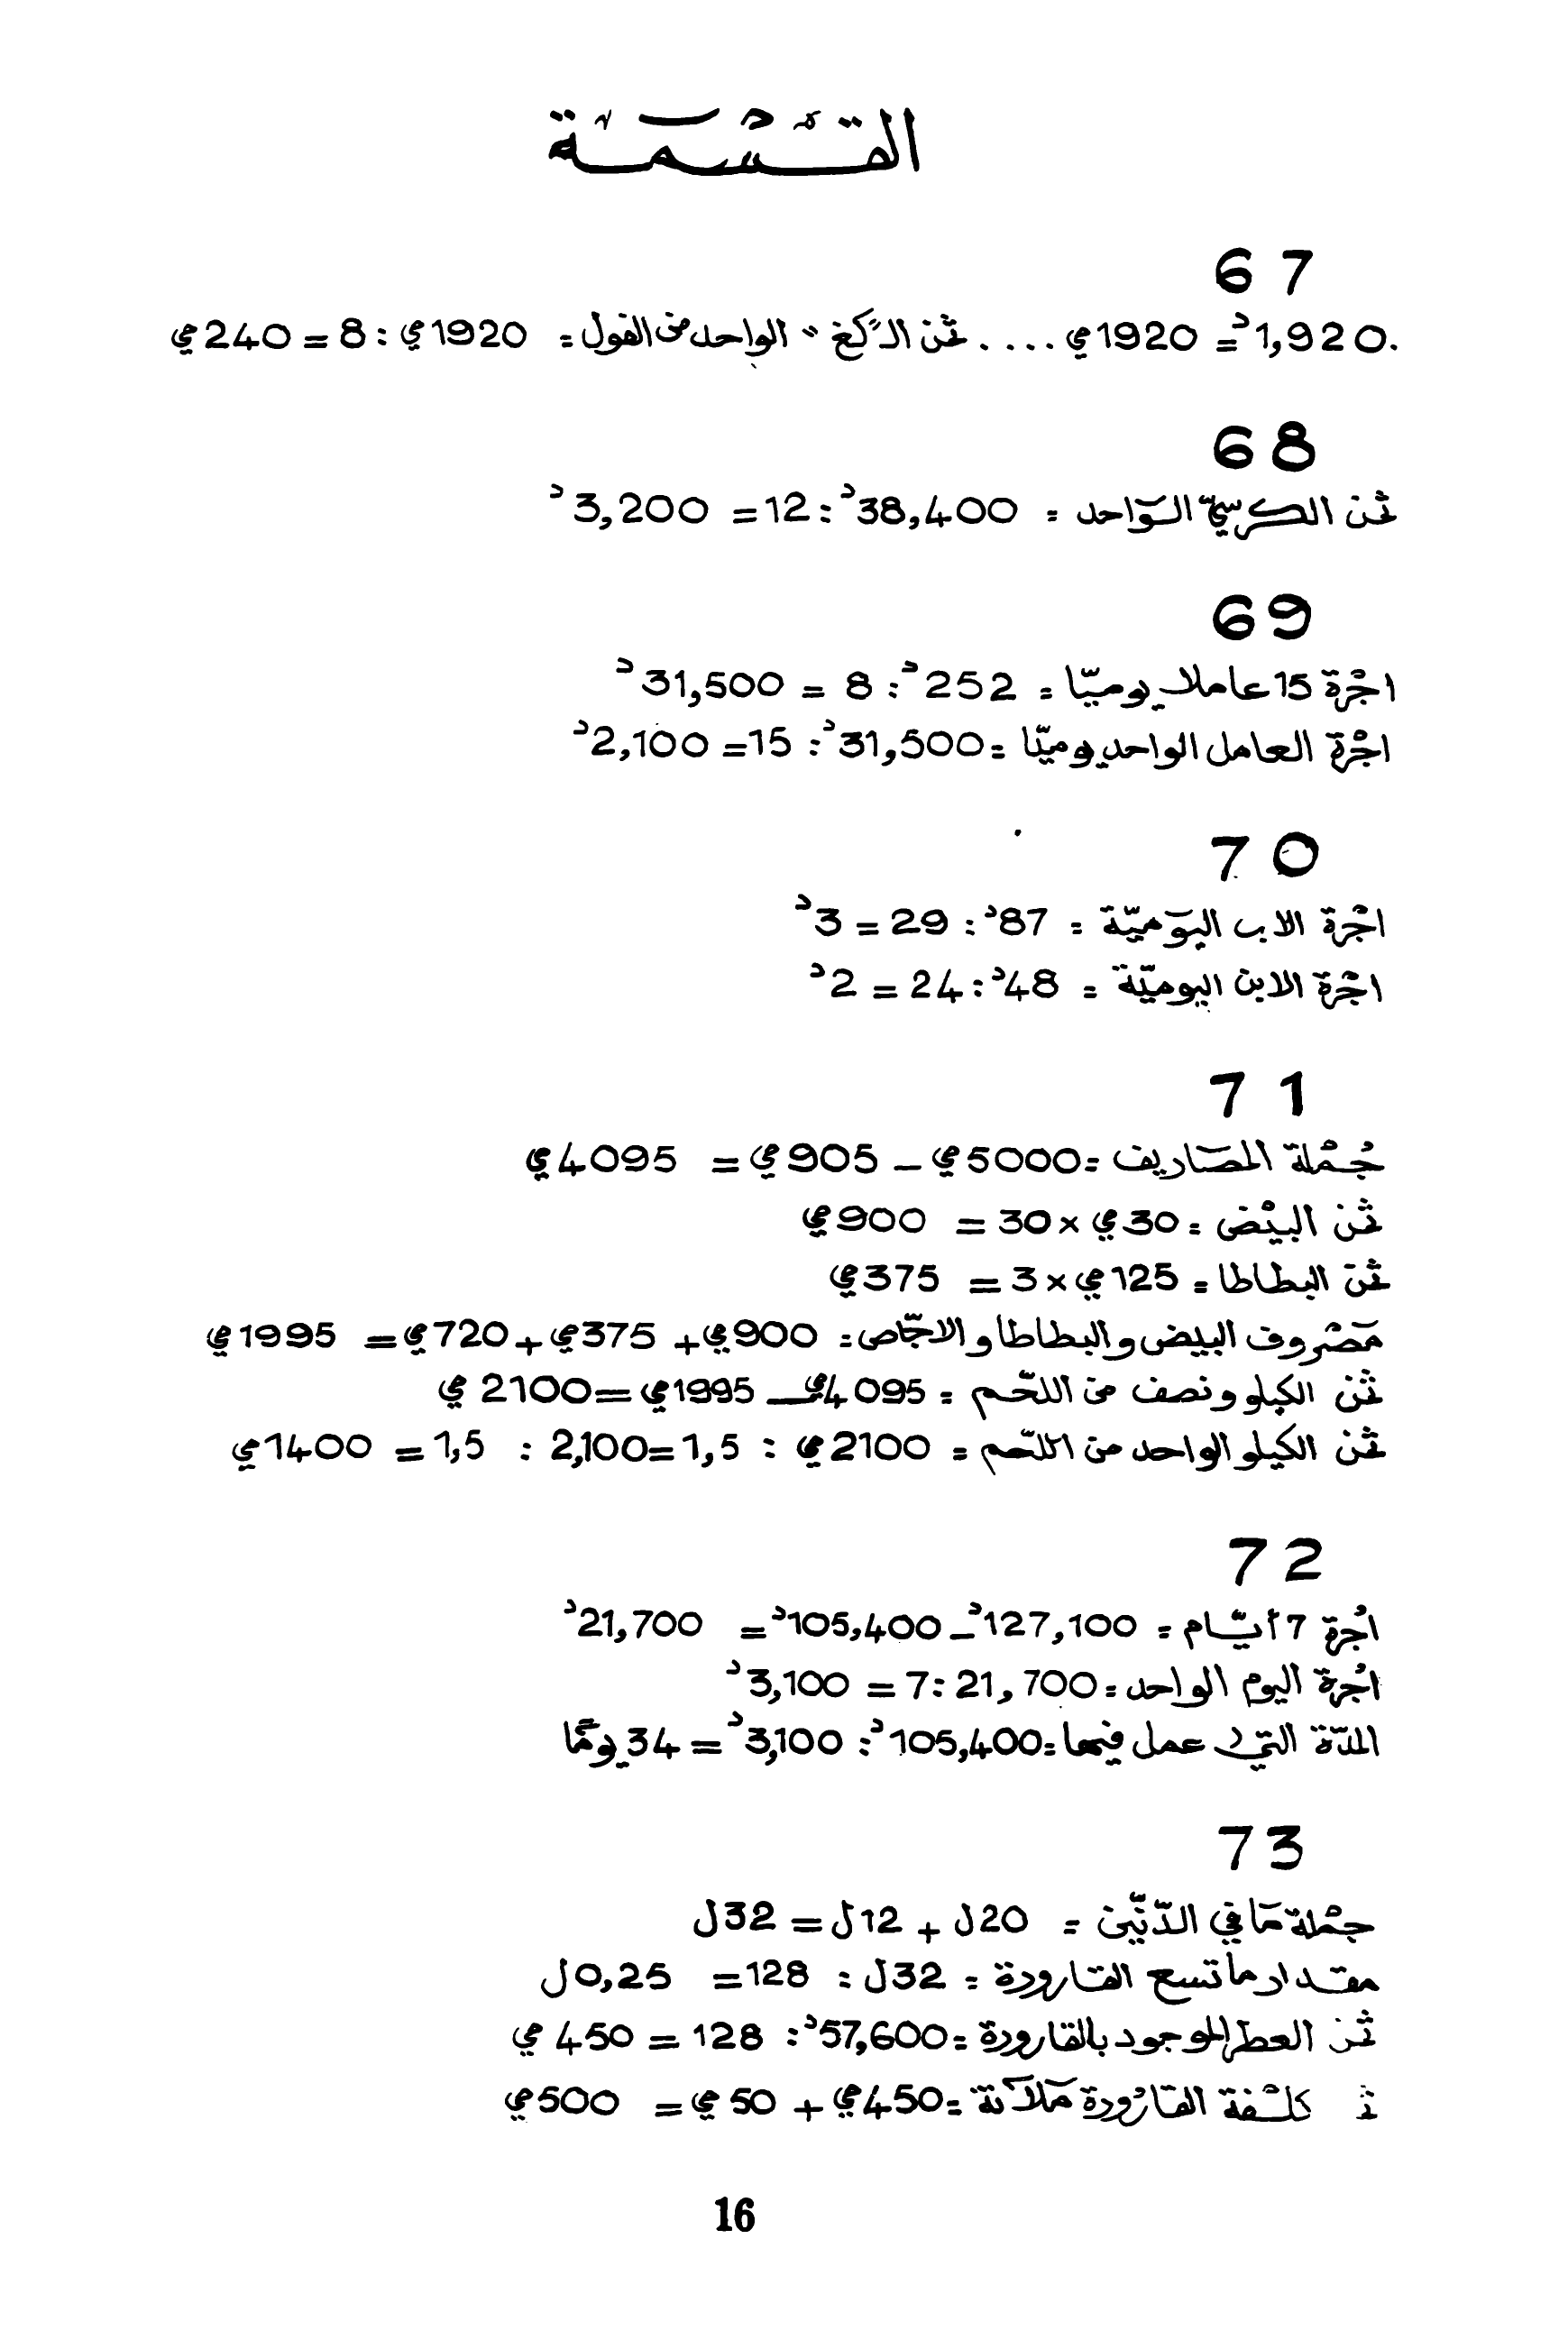 القِسْمَة
67
1,920د = 1920مي .... ثمن الـ"كغ" الواحد من الفول = 1920مي : 8 = 240مي
68
ثمن الكرسيّ الوَاحد = 38,400د : 12 = 3,200د
69
اجْرة 15 عاملا يوميّا = 252د : 8 = 31,500د
اجْرة العامل الواحد يوميّا = 31,500د : 15 = 2,100د
70
اجْرة الاب اليَوميّة = 87د : 29 = 3د
اجْرة الابن اليوميّة = 48د : 24 = 2د
71
جُمْلة المصَاريف = 5000مي – 905مي = 4095مي
ثمن البيْض = 30مي × 30 = 900مي
ثمن البطاطا = 125مي × 3 = 375مي
مَصْروف البيض والبطاطا والاجّاص = 900مي + 375مي + 720مي = 1995مي
ثمن الكيلو ونصف من اللحْم = 4095مي – 1995مي = 2100مي
ثمن الكيلو الواحد من اللحْم = 2100مي : 1,5 = 2,100 : 1,5 = 1400مي
72
اجْرة 7 أيّام = 127,100د – 105,400د = 21,700د
اجْرة اليوم الواحد = 21,700 : 7 = 3,100د
المدّة التي عمل فيها = 105,400د : 3,100د = 34 يومًا
73
جمْلة مَا في الدّنّين = 20ل + 12ل = 32ل
مقدار ما تسع القارورة = 32ل : 128 = 0,25ل
ثمن العطر الموجود بالقارورة = 57,600د : 128 = 450مي
كلْفة القارُورة مَلآنة = 450مي + 50مي = 500مي
16